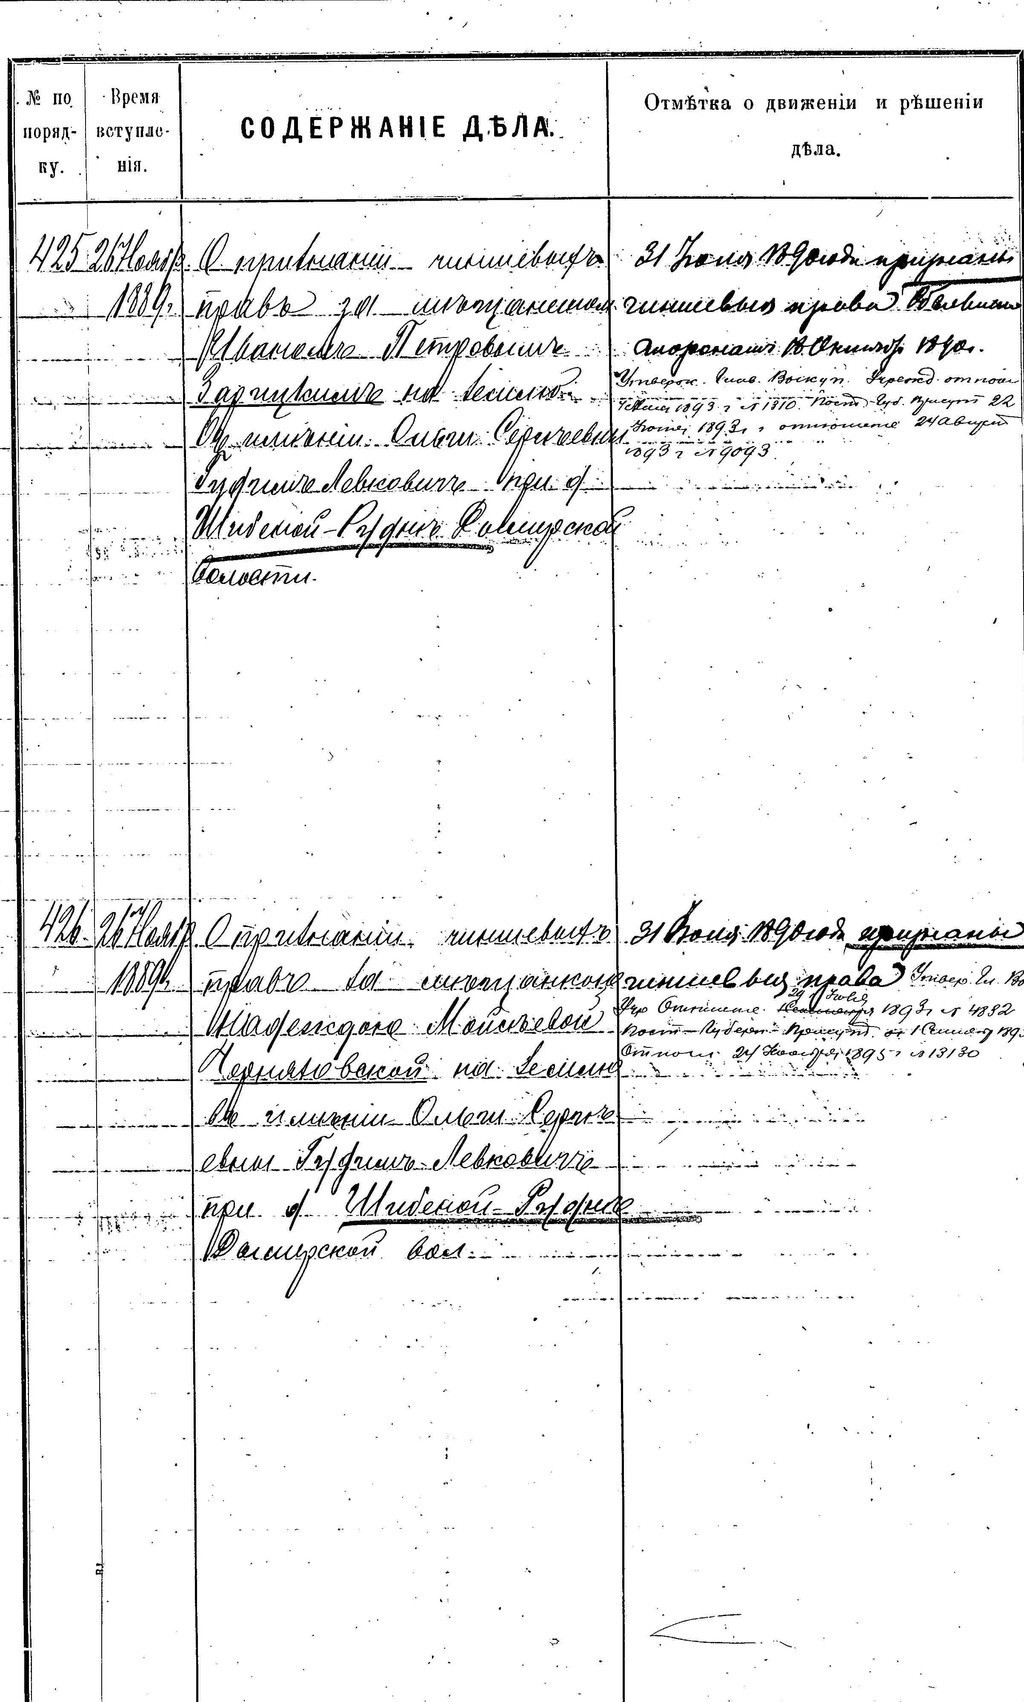 № по поряд- ку.
Время вступле- нія.
СОДЕРЖАНІЕ ДѢЛА.
Отмѣтка о движеніи и рѣшеніи дѣла.
425
26 Ноябр.
1889г.
О признаніи чиншевыхъ
правъ за мѣщаниномъ
Иваномъ Петровымъ
Зарицкимъ на землю
въ имѣніи Ольги Сергѣевны
Гудимъ Левковичъ при д.
Шибеной-Руднѣ Дымерской
волости.
31 Іюля 1890 года признаны
чиншевыя права
18 Октябр. 1890г.
Утверж. Глав. Выкуп. Учрежд. отнош.
1893 г. № 1310. Пост. Губ. Присут. 22
1893 г. отношение 24 Август
1893 г. № 9093.
426.
26 Ноябр.
1889г.
О признаніи чиншевыхъ
правъ за мѣщанкою
Надеждою Мойсѣевой
Черняховской на землю
въ имѣніи Ольги Сергѣ-
евны Гудимъ-Левковичъ
при д. Шибеной-Руднѣ
Дымерской вол.
31 Іюля 1890 года признаны
чиншевыя права Утвер. Гл. Вы
29 Іюля
Учр. Отношение 1893 г. № 4882
Пост. Губерн. Присут. 1 189
Отнош. 24 Ноября 1895 г. № 13130